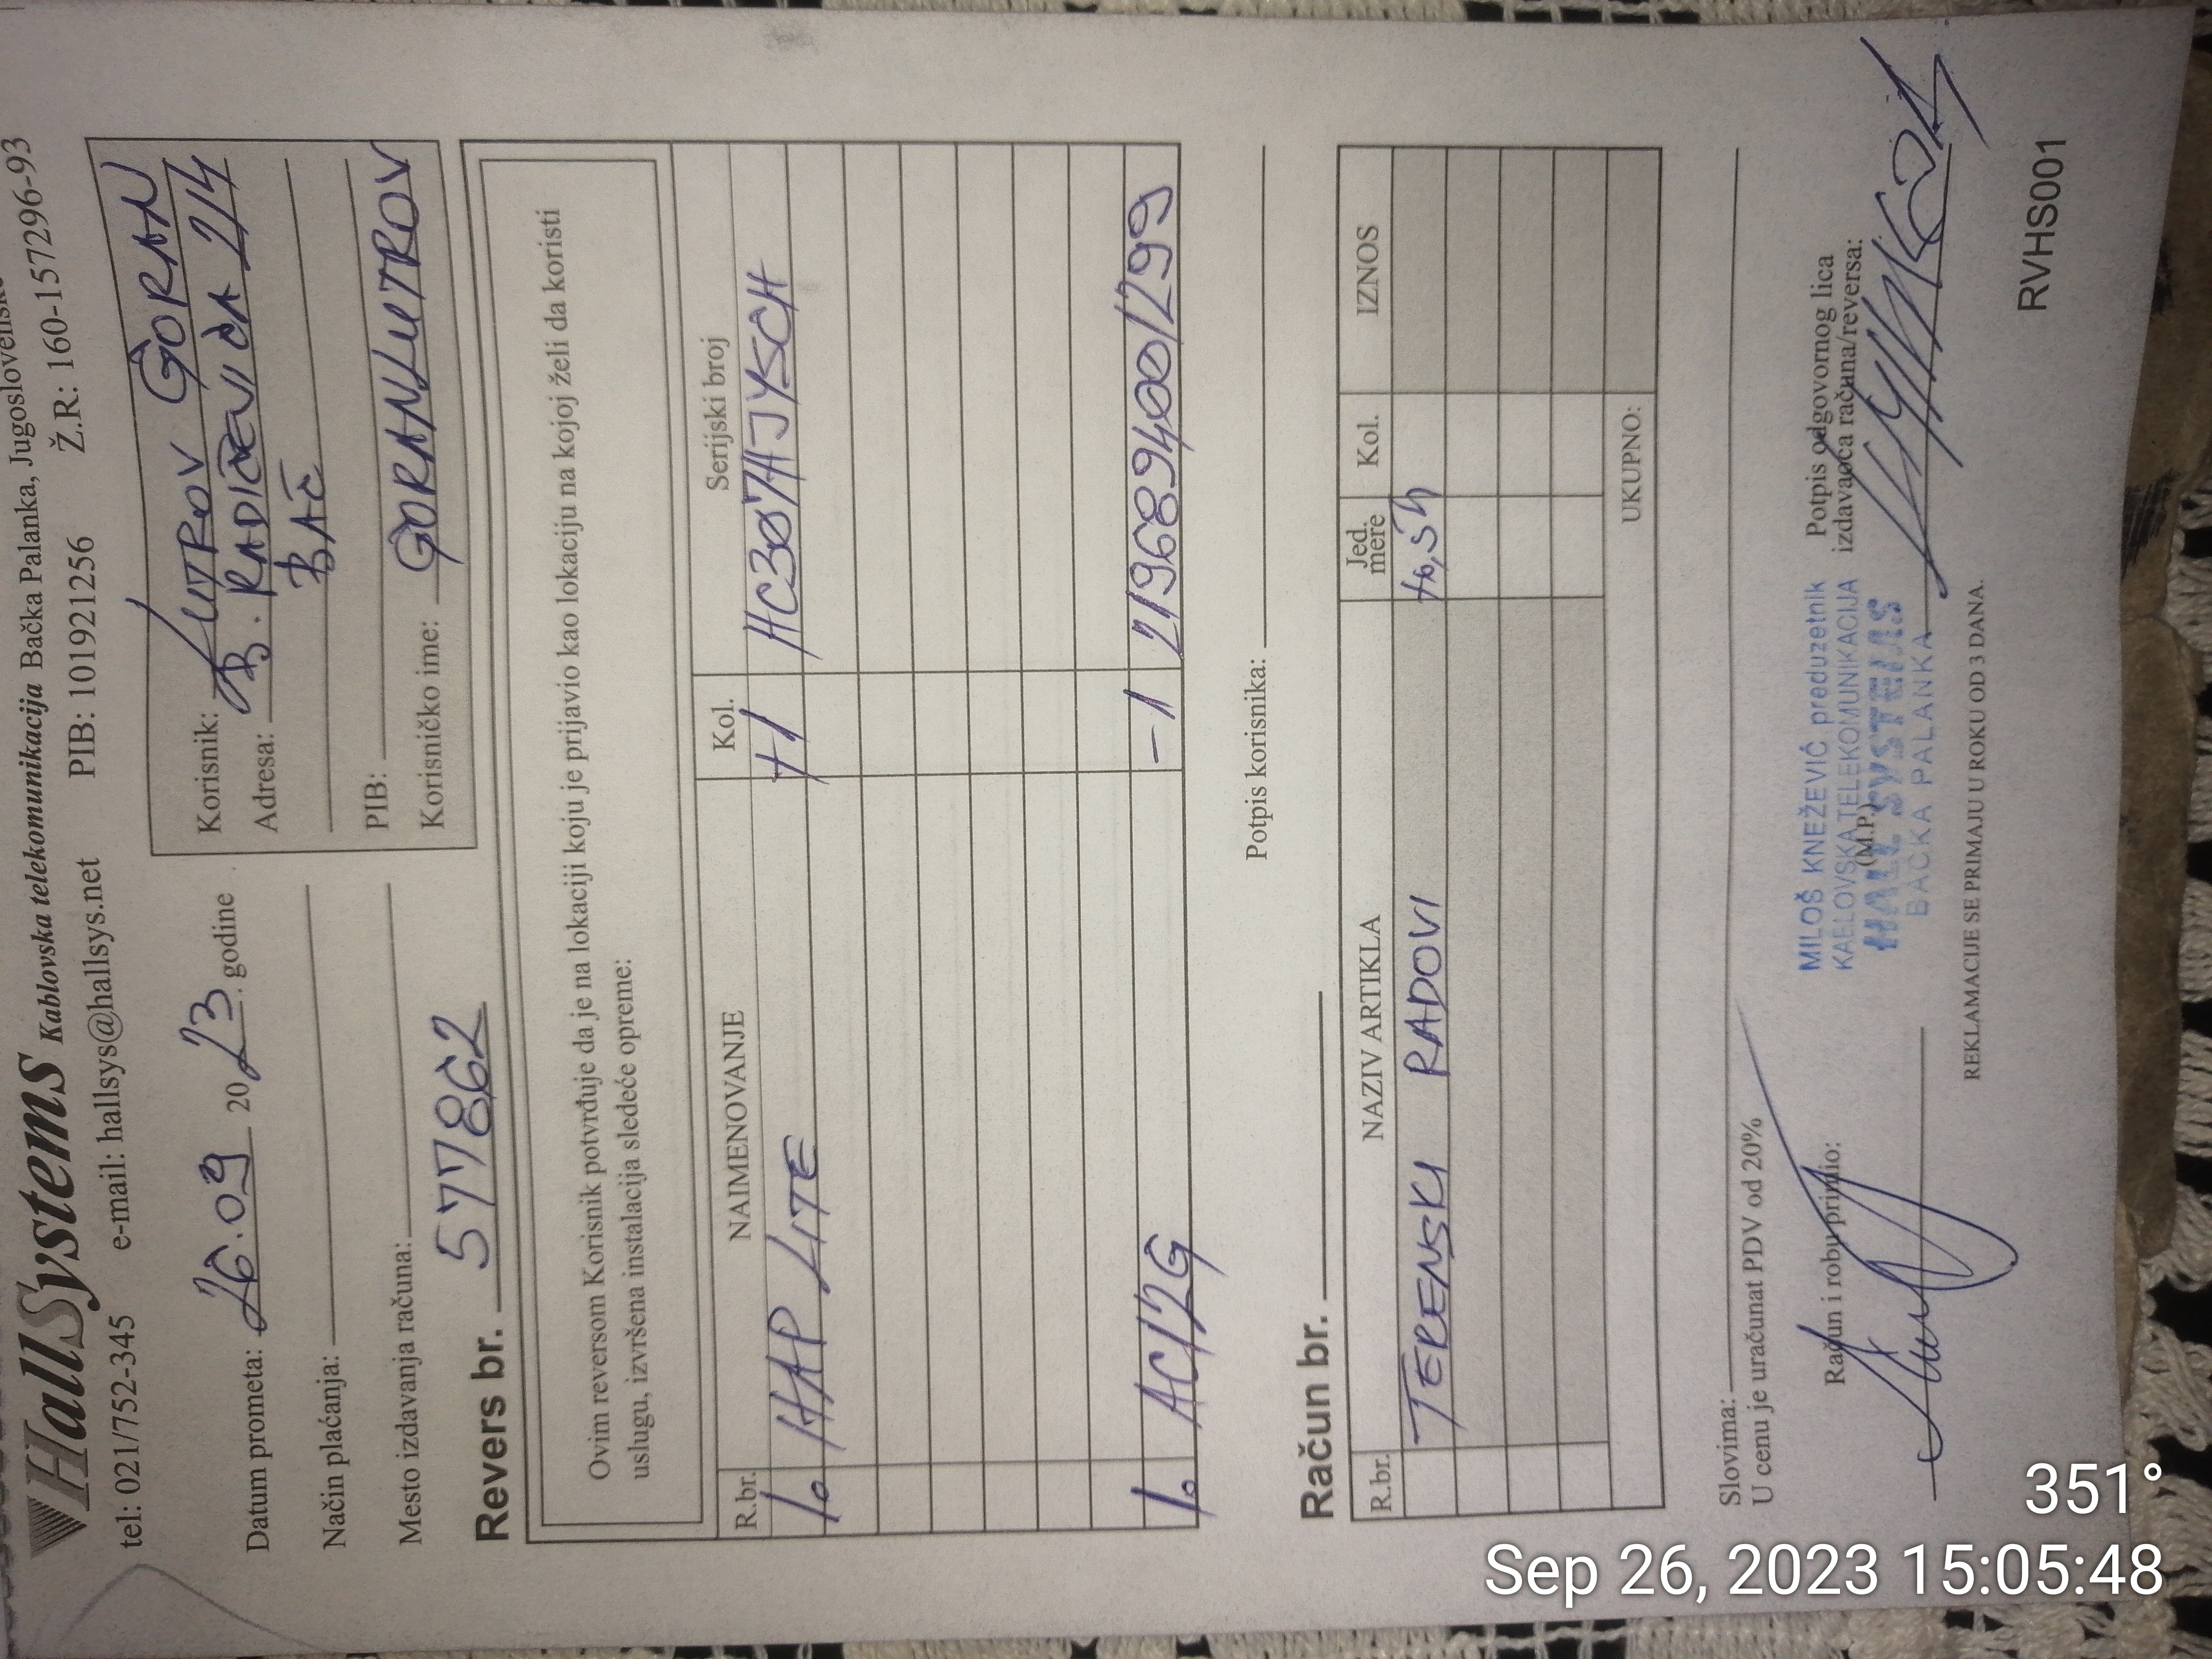 HallSystems Kablovska telekomunikacija Bačka Palanka, Jugoslovenske
tel: 021/752-345 e-mail: hallsys@hallsys.net PIB: 101921256 Ž.R: 160-157296-93
Datum prometa: 26.09 2023. godine
Način plaćanja:
Mesto izdavanja računa:
Korisnik: LUTROV GORAN
Adresa: B. RADIČEVIĆA 2/4
BAČ
PIB:
Korisničko ime: GORANLUTROV
Revers br. 577862
Ovim reversom Korisnik potvrđuje da je na lokaciji koju je prijavio kao lokaciju na kojoj želi da koristi
uslugu, izvršena instalacija sledeće opreme:
R.br. NAIMENOVANJE Kol. Serijski broj
1. HAP LITE +1 HC307AJYSCH
1. AC12G -1 2196894001299
Potpis korisnika:
Račun br.
R.br. NAZIV ARTIKLA Jed. mere Kol. IZNOS
TERENSKI RADOVI
UKUPNO:
Slovima:
U cenu je uračunat PDV od 20%
Račun i robu primio:
MILOŠ KNEŽEVIĆ preduzetnik
KABLOVSKA TELEKOMUNIKACIJA
(M.P.)
HALL SYSTEMS
BAČKA PALANKA
Potpis odgovornog lica
izdavaoca računa/reversa:
REKLAMACIJE SE PRIMAJU U ROKU OD 3 DANA.
RVHS001
351°
Sep 26, 2023 15:05:48